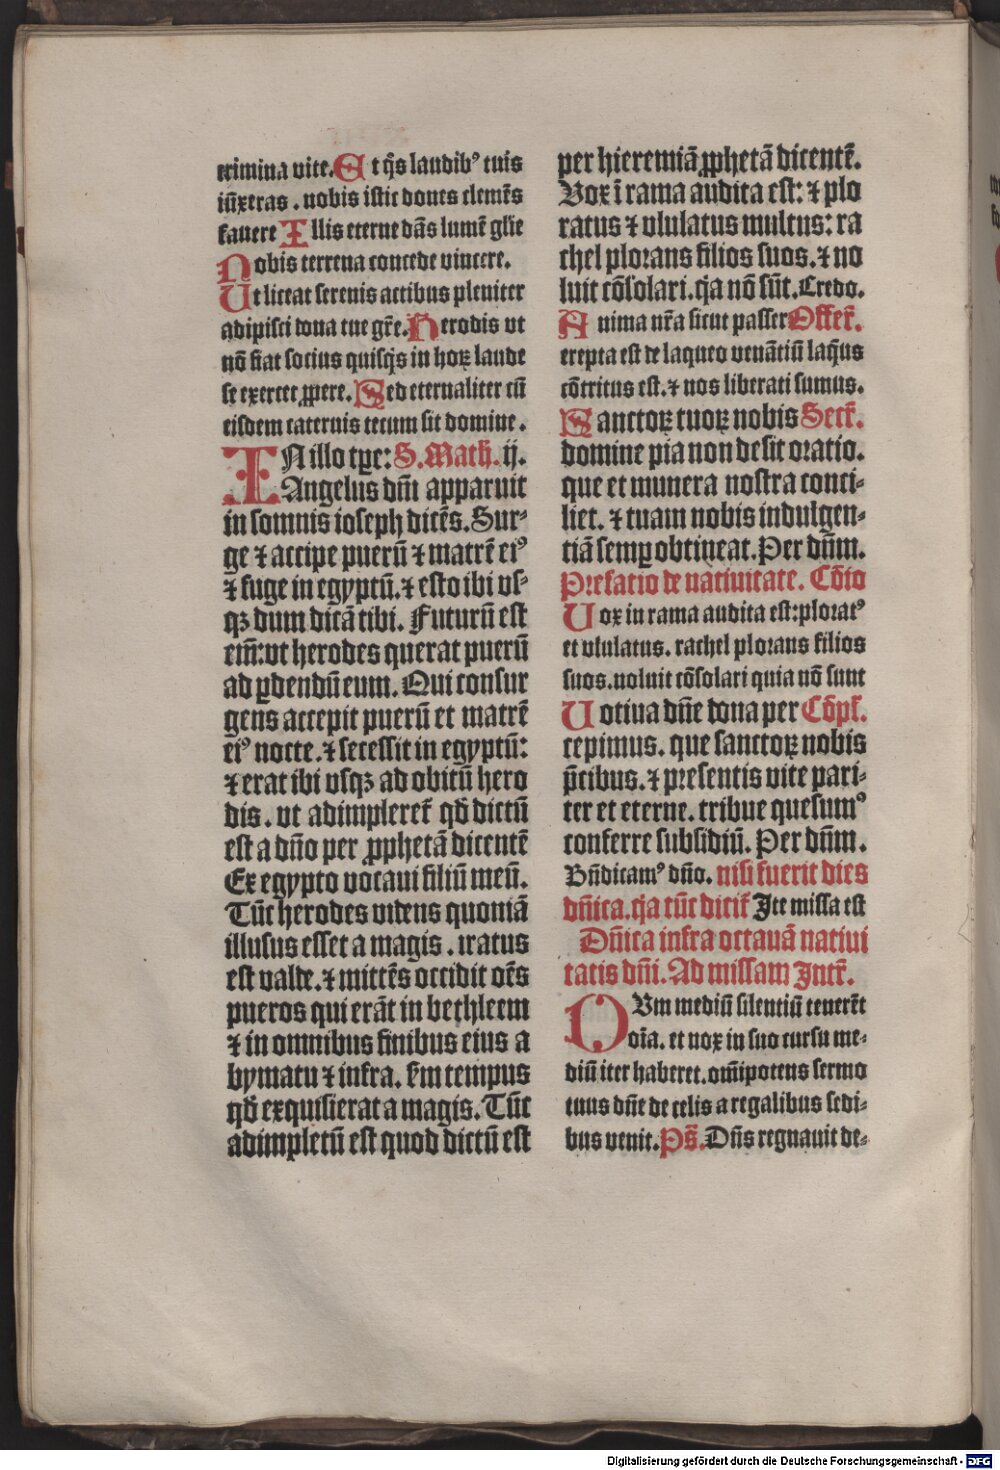 crimina vite. Et q̄s laudibꝰ tuis
iūxeras . nobis istic doues clemēs
fauere Illis eterne dās lumē gl̄ie
Nobis terrena concede vincere.
Ut liceat serenis actibus pleniter
adipisci dona tue gr̄e. Herodis vt
nō fiat socius quisq̄s in hoꝝ laude
se exercet ꝓpere. Sed eternaliter cū
eisdem caternis tecum sit domine .
IN illo tꝑe: S. Math. ij.
Angelus dn̄i apparuit
in somnis ioseph dicēs. Sur-
ge ⁊ accipe puerū ⁊ matrē eiꝰ
⁊ fuge in egyptū. ⁊ esto ibi vs-
qꝫ dum dicā tibi. Futurū est
eni̅: vt herodes querat puerū
ad ꝑdendū eum. Qui consur
gens accepit puerū et matrē
eiꝰ nocte. ⁊ secessit in egyptū:
⁊ erat ibi vsqꝫ ad obitū hero
dis . vt adimpleret̄ qd̄ dictū
est a dn̄o per ꝓphetā dicentē
Ex egypto vocaui filiū meū.
Tūc herodes videns quoniā
illusus esset a magis . iratus
est valde. ⁊ mittēs occidit oēs
pueros qui erāt in bethleem
⁊ in omnibus finibus eius a
bymatu ⁊ infra. sm̄ tempus
qd̄ exquisierat a magis. Tūc
adimpletū est quod dictū est
per hieremiā ꝓphetā dicentē.
Vox ī rama audita est: ⁊ plo
ratus ⁊ vlulatus multus: ra
chel plorans filios suos. ⁊ no
luit cōsolari. q̄a nō sūt. Credo.
Anima nr̄a sicut passer Offer̄.
erepta est de laqueo venātiū laq̄us
cōtritus est. ⁊ nos liberati sumus.
Sanctoꝝ tuoꝝ nobis Secr̄.
domine pia non desit oratio.
que et munera nostra conci-
liet. ⁊ tuam nobis indulgen-
tiā semꝑ obtineat. Per dn̄m.
Prefatio de natiuitate. Cōio
Uox in rama audita est: ploratꝰ
et vlulatus. rachel plorans filios
suos. noluit cōsolari quia nō sunt
Uotiua dn̄e dona per Cōpl̄.
cepimus. que sanctoꝝ nobis
p̄cibus. ⁊ presentis vite pari-
ter et eterne. tribue quesumꝰ
conferre subsidiū. Per dn̄m.
Bn̄dicamꝰ dn̄o. nisi fuerit dies
dn̄ica. q̄a tūc dicit̄ Ite missa est
Dn̄ica infra octauā natiui
tatis dn̄i. Ad missam Intr̄.
DVm mediū silentiū tenerēt
oīa. et nox in suo cursu me-
diū iter haberet. om̄ipotens sermo
tuus dn̄e de celis a regalibus sedi-
bus venit. Ps̄. Dn̄s regnauit de-
Digitalisierung gefördert durch die Deutsche Forschungsgemeinschaft - DFG